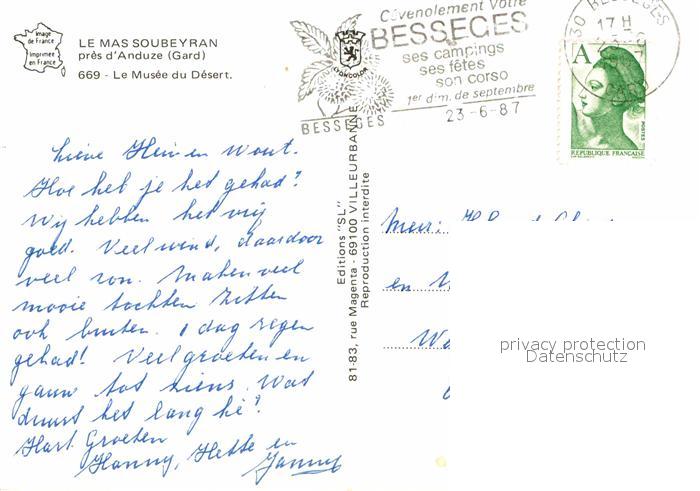 Image
de France
Imprimée
en France
LE MAS SOUBEYRAN
près d'Anduze (Gard)
669 - Le Musée du Désert.
Cévenolement Vôtre
BESSEGES
ses campings
ses fêtes
son corso
1er dim. de septembre
23-6-87
BESSEGES
30 BESSEGES
17 H
GARD
A
POSTES
REPUBLIQUE FRANÇAISE
Lieve Hein en Wout.
Hoe heb je het gehad?
Wij hebben het vrij
goed. Veel wind, daardoor
veel zon. Maken veel
mooie tochten zitten
ook buiten. 1 dag regen
gehad! Veel groeten en
gauw tot ziens. Wat
duurt het lang hè?
Hart. Groeten
Hanny, Hette en
Janny
Editions "SL"
81-83, rue Magenta - 69100 VILLEURBANNE
Reproduction interdite
en
privacy protection
Datenschutz